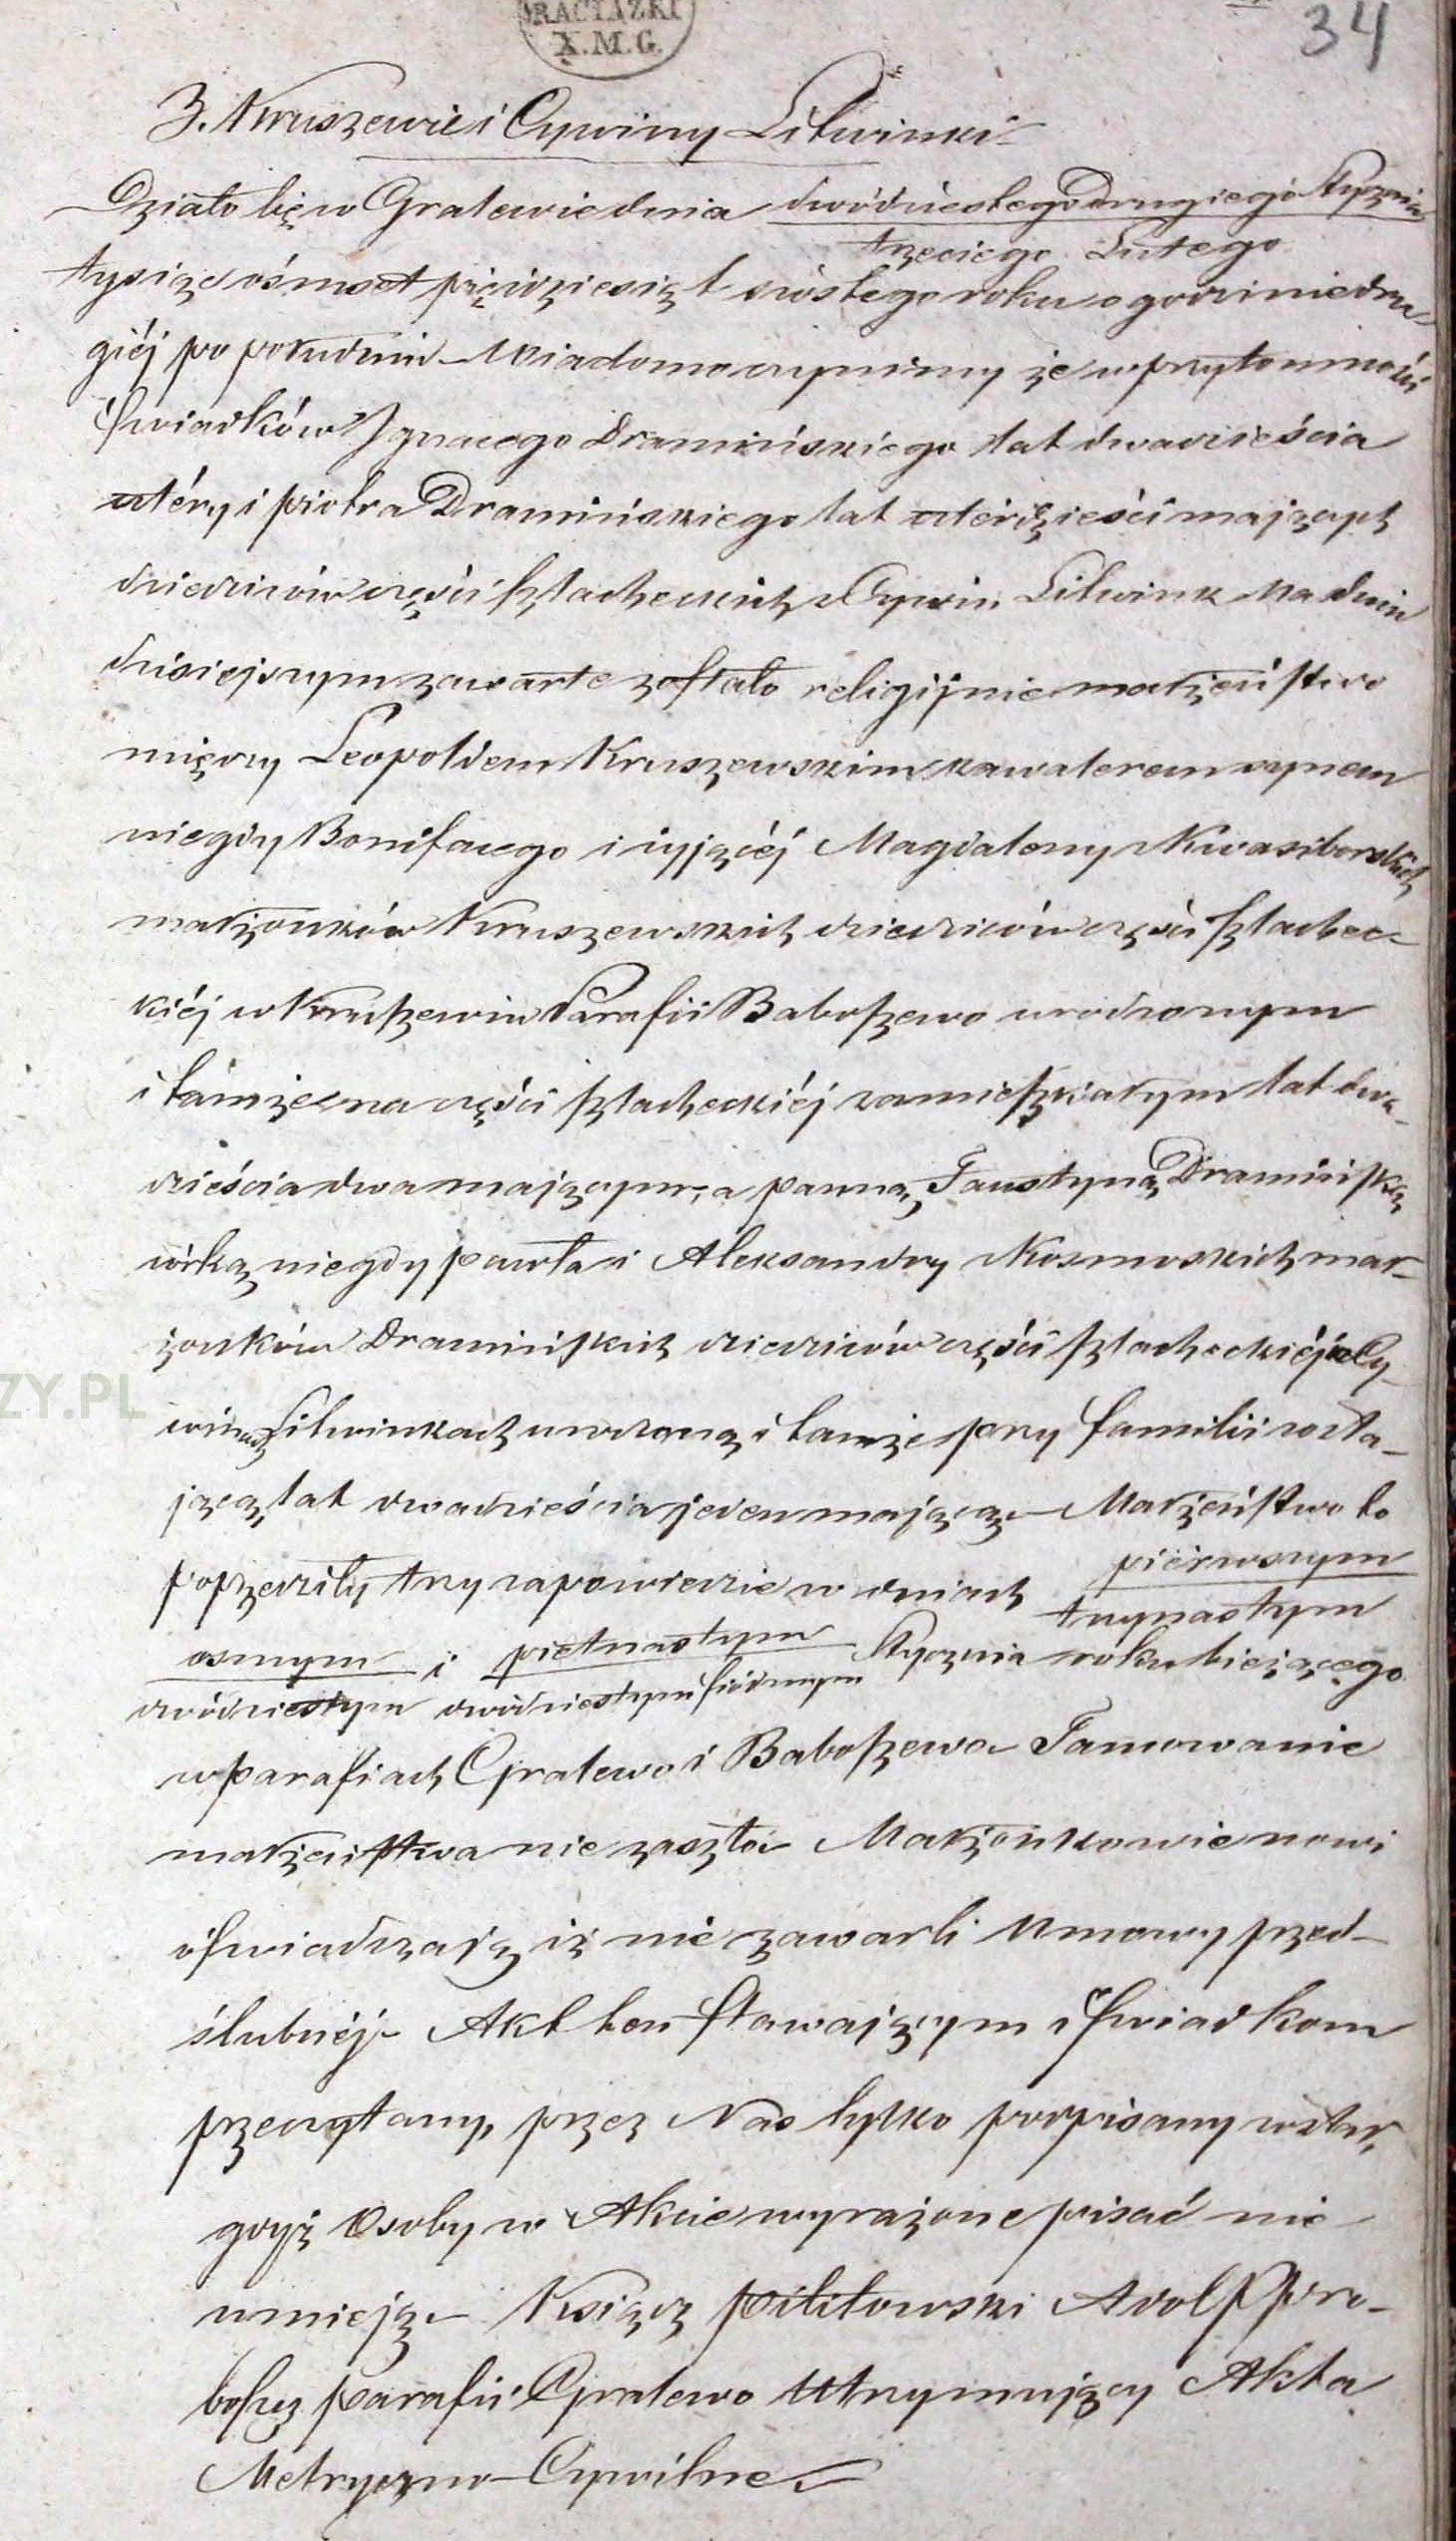 RACIĄŻKI
X.M.G.
34
3. Kruszewie i Cywiny Litwinki
Działo się w Gralewie dnia dwódziestego Drugiego Stycznia
trzeciego Lutego
tysiąc ośmset pięćdziesiąt szóstego roku o godzinie dru-
giéj po południu – Wiadomo czyniemy że w przytomności
świadków Ignacego Dramińskiego lat dwadzieścia
cztéry i piotra Dramińskiego lat czterdzieści mających
dziedziców części szlacheckich z Cywin Litwink na dniu
dzisiejszym zawarte zostało religijnie małżeństwo
między Leopoldem Kruszewskim kawalerem synem
niegdy Bonifacego i żyjącéj Magdaleny Kwasiborskich
małżonków Kruszewskich dziedziców części szlachec-
kiéj w Kruszewiu Parafii Baboszewo urodzonym
i tamże na części szlacheckiéj zamieszkałym lat dwa-
dzieścia dwa mającym, a panną Faustyną Dramińską
córką niegdy pawła i Aleksandry Kosmoskich mał-
żonków Dramińskich dziedziców części szlacheckiéj w Cy-
winach Litwinkach urodzoną i tamże przy familii zosta-
jącą, lat dwadzieścia jeden mającą – Małżeństwo to
poprzedziły trzy zapowiedzie w dniach pierwszym
trzynastym
osmym i piętnastym Stycznia roku bieżącego
dwódziestym dwódziestym siódmym
w parafiach Gralewo i Baboszewo Tamowanie
małżeństwa nie zaszło – Małżonkowie nowi
oświadczają iż nie zawarli umowy przed-
ślubnéj – Akt ten stawającym i świadkom
przeczytany, przez Nas tylko podpisany został,
gdyż Osoby w Akcie wyrażone pisać nie
umieją – Ksiądz pilitowski Adolf pro-
boszcz parafii Gralewo Utrzymujący Akta
Metryczno – Cywilne
ZY.PL